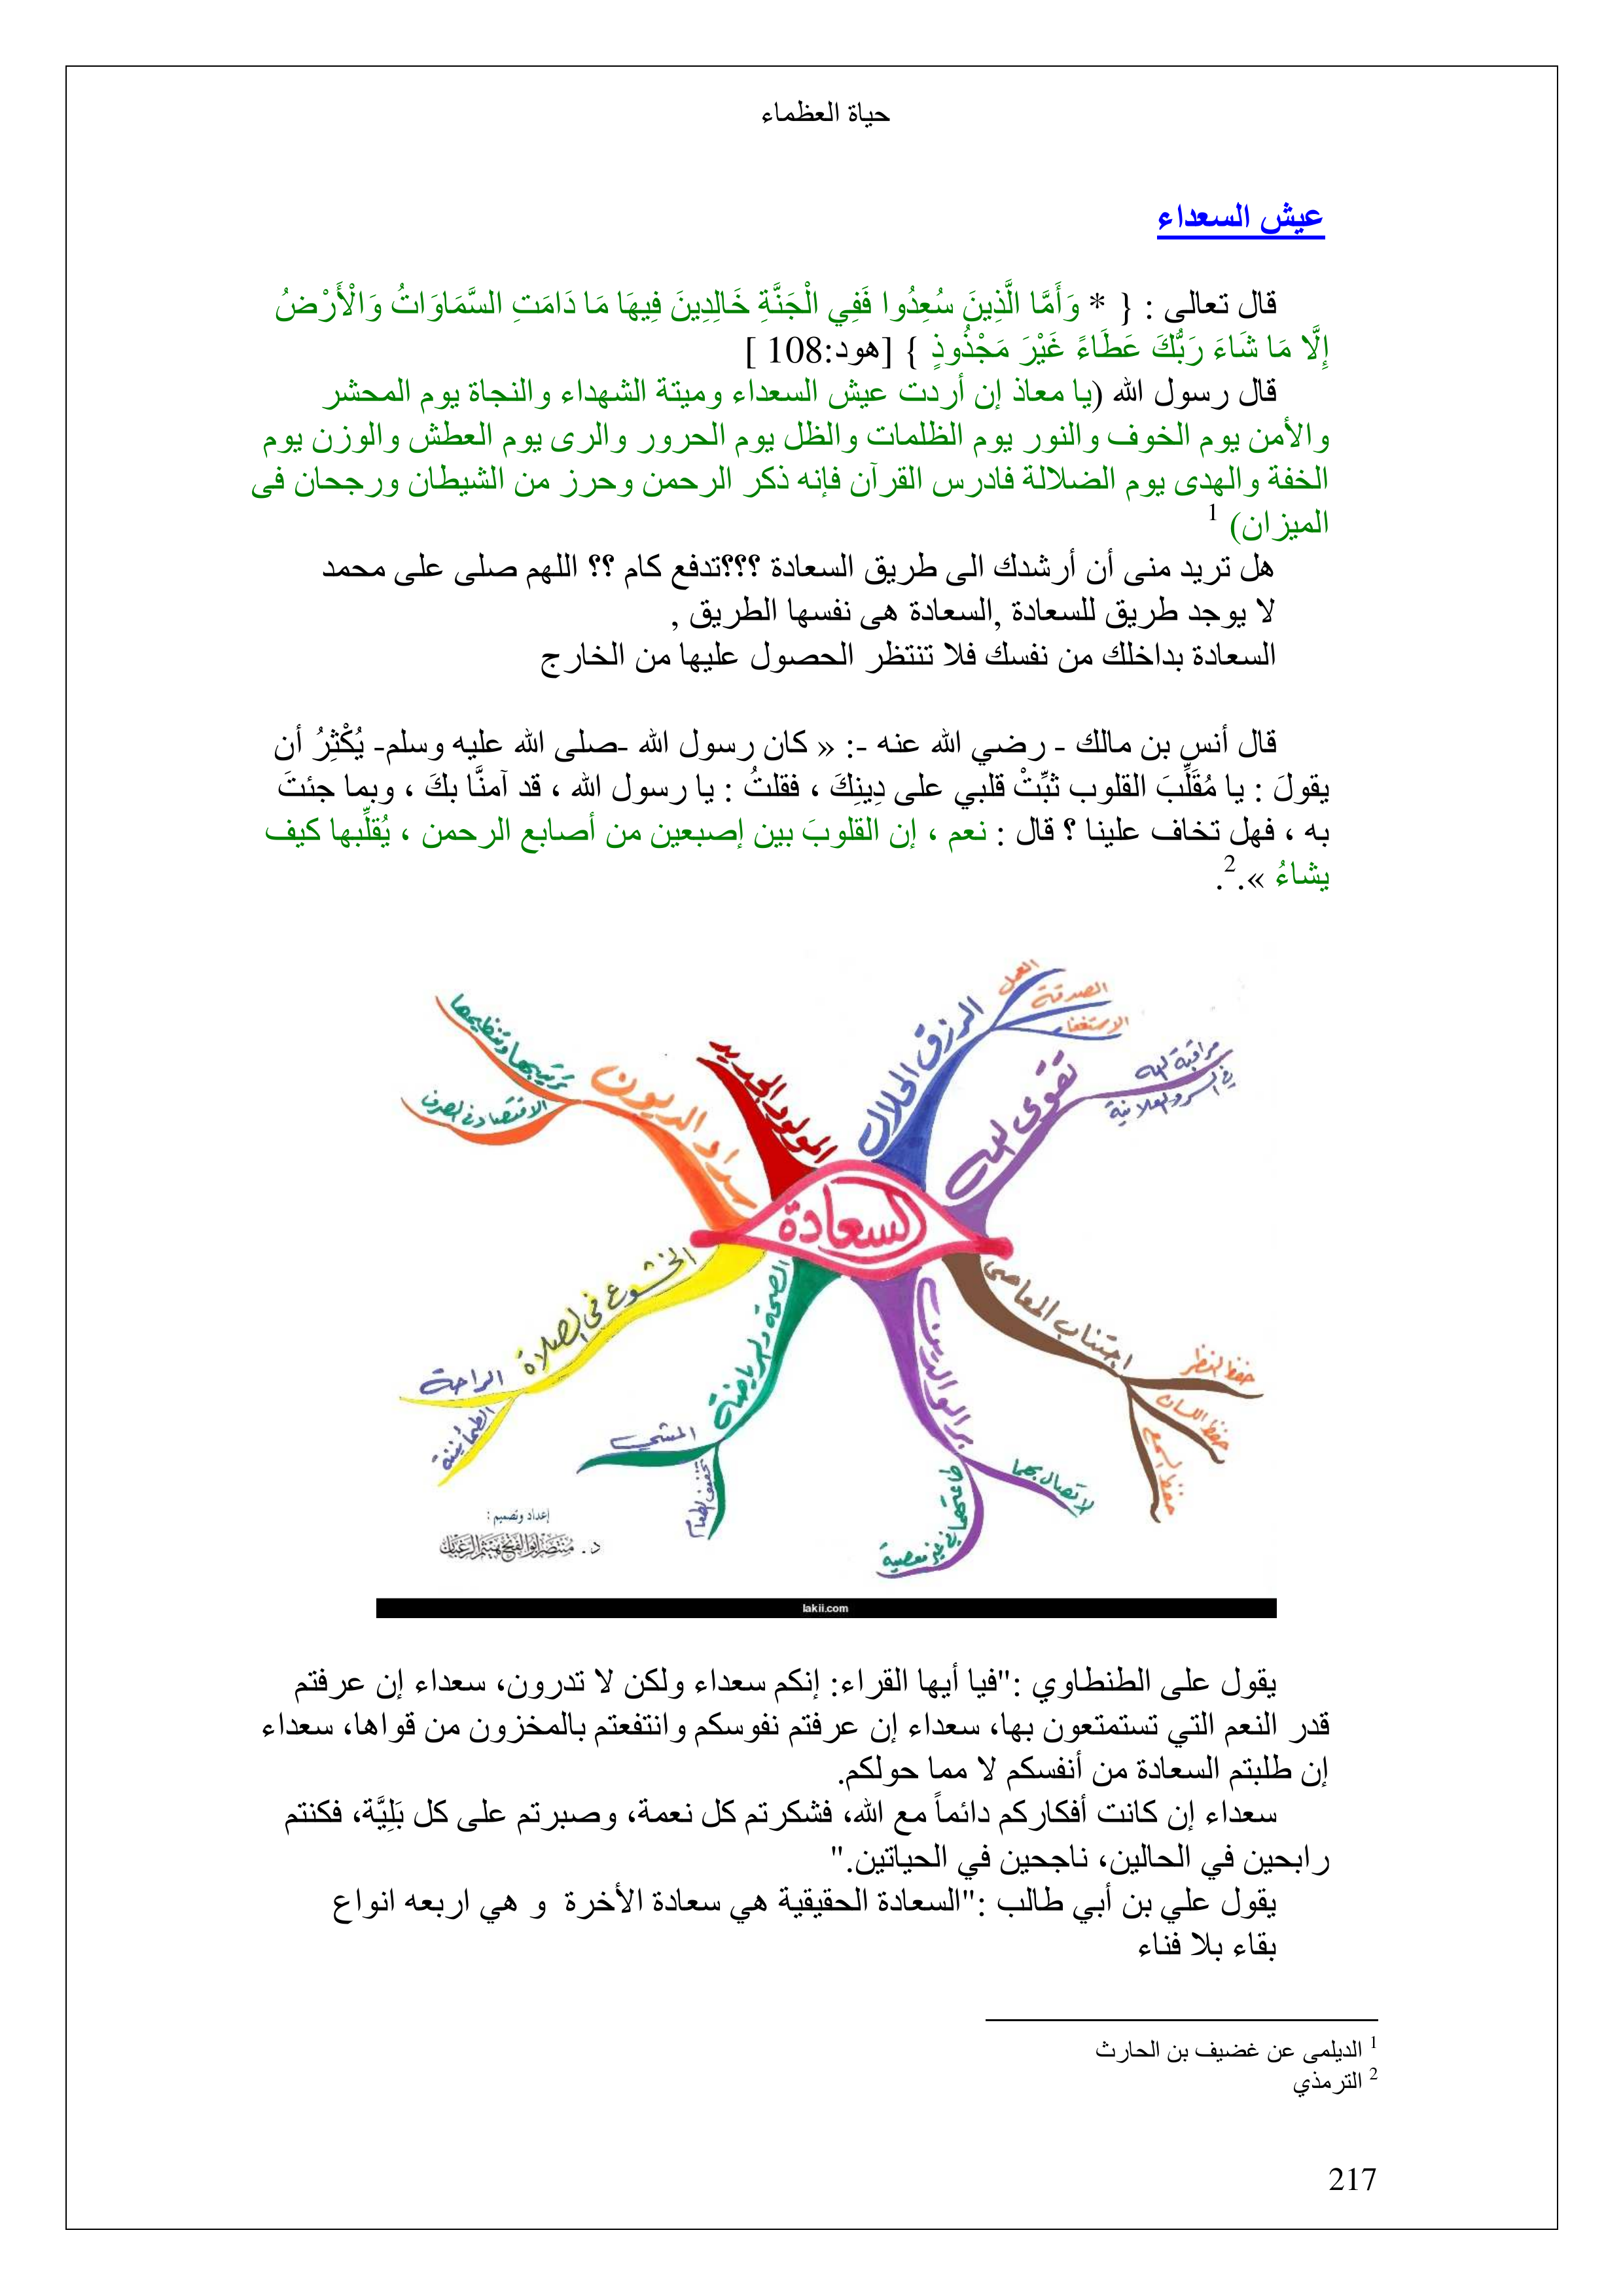 حياة العظماء
عيش السعداء
قال تعالى : { * وَأَمَّا الَّذِينَ سُعِدُوا فَفِي الْجَنَّةِ خَالِدِينَ فِيهَا مَا دَامَتِ السَّمَاوَاتُ وَالْأَرْضُ
إِلَّا مَا شَاءَ رَبُّكَ عَطَاءً غَيْرَ مَجْذُوذٍ } [هود:108 ]
قال رسول الله (يا معاذ إن أردت عيش السعداء وميتة الشهداء والنجاة يوم المحشر
والأمن يوم الخوف والنور يوم الظلمات والظل يوم الحرور والرى يوم العطش والوزن يوم
الخفة والهدى يوم الضلالة فادرس القرآن فإنه ذكر الرحمن وحرز من الشيطان ورجحان فى
الميزان) 1
هل تريد منى أن أرشدك الى طريق السعادة ؟؟؟تدفع كام ؟؟ اللهم صلى على محمد
لا يوجد طريق للسعادة ,السعادة هى نفسها الطريق ,
السعادة بداخلك من نفسك فلا تنتظر الحصول عليها من الخارج
قال أنس بن مالك - رضي الله عنه -: « كان رسول الله -صلى الله عليه وسلم- يُكْثِرُ أن
يقولَ : يا مُقَلِّبَ القلوب ثبِّتْ قلبي على دِينِكَ ، فقلتُ : يا رسول الله ، قد آمنَّا بكَ ، وبما جئتَ
به ، فهل تخاف علينا ؟ قال : نعم ، إن القلوبَ بين إصبعين من أصابع الرحمن ، يُقلِّبها كيف
يشاءُ ».2.
السعادة
تقوى الله
مراقبة الله
في السر والعلانية
الرزق الحلال
العمل
الصدقة
الاستغفار
المولود الجديد
سداد الديون
ترتيبها وتنظيمها
الاقتصاد في الصرف
الخشوع في الصلاة
الراحة
الطمأنينة
الصحة والرياضة
المشي
تخفيف الطعام
بر الوالدين
الاتصال بهما
طاعتهما في غير معصية
اجتناب المعاصي
حفظ النظر
حفظ اللسان
حفظ السمع
إعداد وتصميم :
lakii.com
يقول على الطنطاوي :"فيا أيها القراء: إنكم سعداء ولكن لا تدرون، سعداء إن عرفتم
قدر النعم التي تستمتعون بها، سعداء إن عرفتم نفوسكم وانتفعتم بالمخزون من قواها، سعداء
إن طلبتم السعادة من أنفسكم لا مما حولكم.
سعداء إن كانت أفكاركم دائماً مع الله، فشكرتم كل نعمة، وصبرتم على كل بَلِيَّة، فكنتم
رابحين في الحالين، ناجحين في الحياتين."
يقول علي بن أبي طالب :"السعادة الحقيقية هي سعادة الأخرة و هي اربعه انواع
بقاء بلا فناء
1 الديلمى عن غضيف بن الحارث
2 الترمذي
217